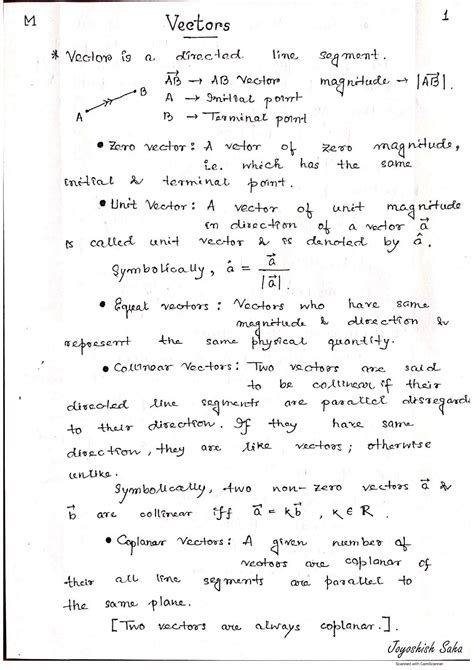 M Vectors 1
* Vector is a directed line segment.
A B AB → AB Vector magnitude → |AB|.
A → Initial point
B → Terminal point
• Zero vector : A vetor of zero magnitude,
i.e. which has the same
initial & terminal point.
• Unit Vector : A vector of unit magnitude
in direction of a vector a⃗
is called unit vector & is denoted by â.
Symbolically, â = a⃗ / |a⃗|.
• Equal vectors : Vectors who have same
magnitude & direction &
represent the same physical quantity.
• Collinear Vectors : Two vectors are said
to be collinear if their
directed line segments are parallel disregards
to their direction. If they have same
direction, they are like vectors; otherwise
unlike.
Symbolically, two non-zero vectors a⃗ &
b⃗ are collinear iff a⃗ = Kb⃗, K ∈ R.
• Coplanar Vectors : A given number of
vectors are coplanar if
their all line segments are parallel to
the same plane.
[Two vectors are always coplanar.]
Joyoshish Saha
Scanned with CamScanner